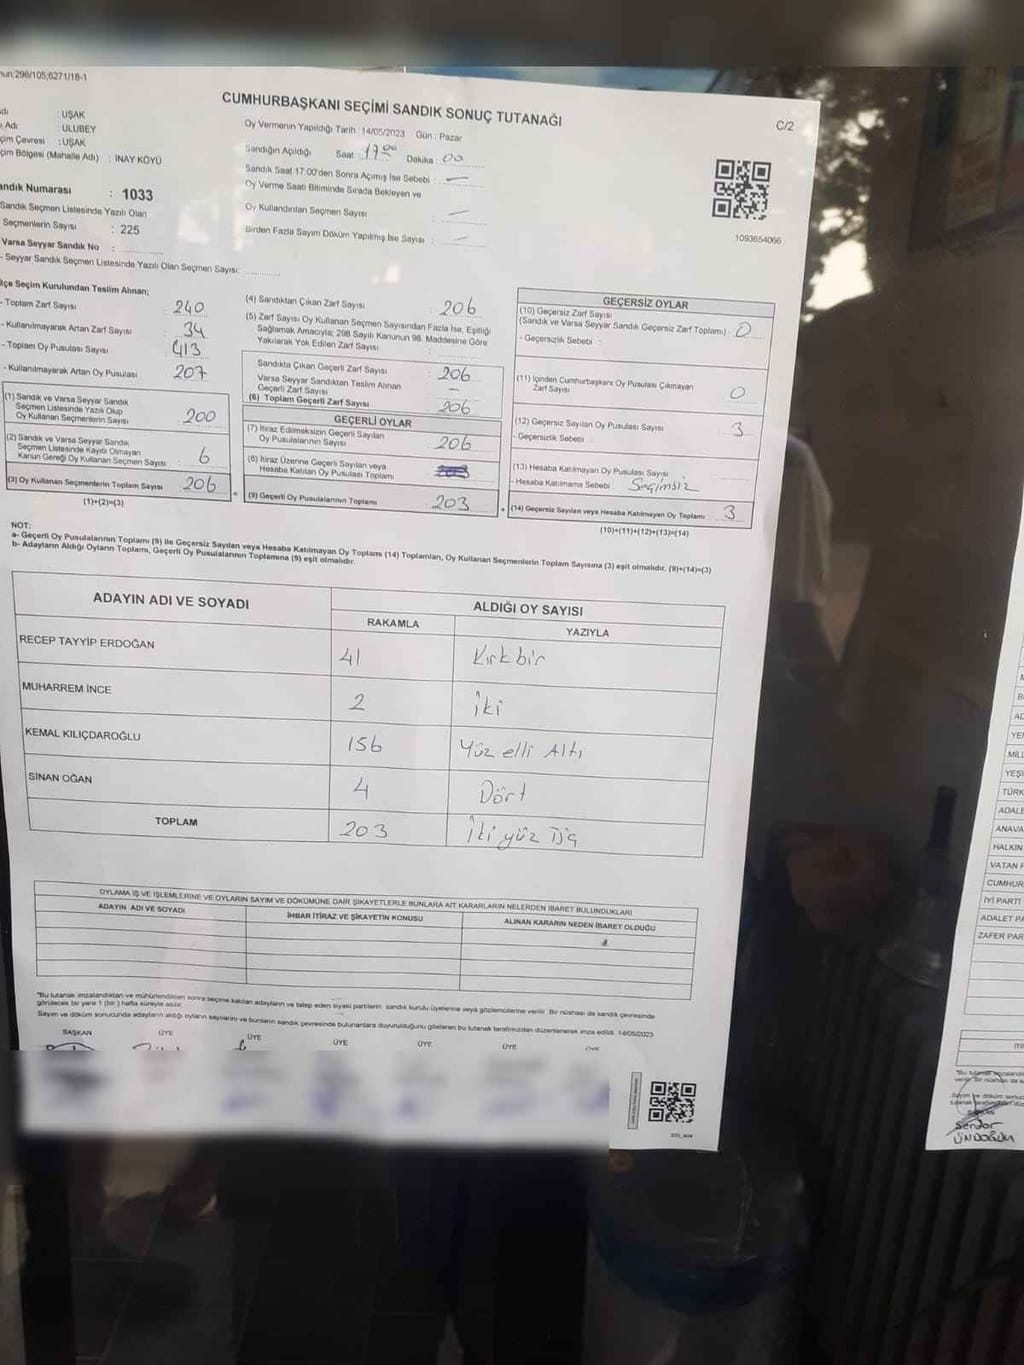 296/105;6271/18-1
CUMHURBAŞKANI SEÇİMİ SANDIK SONUÇ TUTANAĞI
C/2
: UŞAK
Adı : ULUBEY
Çevresi : UŞAK
Bölgesi (Mahalle Adı) : İNAY KÖYÜ
Numarası : 1033
Sandık Seçmen Listesinde Yazılı Olan
Seçmenlerin Sayısı : 225
Varsa Seyyar Sandık No :
- Seyyar Sandık Seçmen Listesinde Yazılı Olan Seçmen Sayısı:
Oy Vermenin Yapıldığı Tarih : 14/05/2023 Gün : Pazar
Sandığın Açıldığı Saat 17 00 Dakika : 00
Sandık Saat 17:00'den Sonra Açımış İse Sebebi : —
Oy Verme Saati Bitiminde Sırada Bekleyen ve
Oy Kullandırılan Seçmen Sayısı : —
Birden Fazla Sayım Döküm Yapılmış İse Sayısı : —
1093654066
Seçim Kurulundan Teslim Alınan;
- Toplam Zarf Sayısı 240
- Kullanılmayarak Artan Zarf Sayısı : 34
- Toplam Oy Pusulası Sayısı : 413
- Kullanılmayarak Artan Oy Pusulası 207
(1) Sandık ve Varsa Seyyar Sandık
Seçmen Listesinde Yazılı Olup
Oy Kullanan Seçmenlerin Sayısı : 200
(2) Sandık ve Varsa Seyyar Sandık
Seçmen Listesinde Kayıtlı Olmayan
Kanun Gereği Oy Kullanan Seçmen Sayısı : 6
(3) Oy Kullanan Seçmenlerin Toplam Sayısı : 206
(1)+(2)=(3)
(4) Sandıktan Çıkan Zarf Sayısı 206
(5) Zarf Sayısı Oy Kullanan Seçmen Sayısından Fazla İse, Eşitliği
Sağlamak Amacıyla; 298 Sayılı Kanunun 98. Maddesine Göre
Yakılarak Yok Edilen Zarf Sayısı :
Sandıkta Çıkan Geçerli Zarf Sayısı : 206
Varsa Seyyar Sandıktan Teslim Alınan
Geçerli Zarf Sayısı : —
(6) Toplam Geçerli Zarf Sayısı : 206
GEÇERLİ OYLAR
(7) İtiraz Edilmeksizin Geçerli Sayılan
Oy Pusulalarının Sayısı : 206
(8) İtiraz Üzerine Geçerli Sayılan veya
Hesaba Katılan Oy Pusulası Toplamı :
= (9) Geçerli Oy Pusulalarının Toplamı : 203
GEÇERSİZ OYLAR
(10) Geçersiz Zarf Sayısı
(Sandık ve Varsa Seyyar Sandık Geçersiz Zarf Toplamı) : 0
- Geçersizlik Sebebi :
(11) İçinden Cumhurbaşkanı Oy Pusulası Çıkmayan
Zarf Sayısı : 0
(12) Geçersiz Sayılan Oy Pusulası Sayısı : 3
- Geçersizlik Sebebi :
(13) Hesaba Katılmayan Oy Pusulası Sayısı
- Hesaba Katılmama Sebebi : Seçimsiz
+ (14) Geçersiz Sayılan veya Hesaba Katılmayan Oy Toplamı : 3
(10)+(11)+(12)+(13)=(14)
NOT:
a- Geçerli Oy Pusulalarının Toplamı (9) ile Geçersiz Sayılan veya Hesaba Katılmayan Oy Toplamı (14) Toplamları, Oy Kullanan Seçmenlerin Toplam Sayısına (3) eşit olmalıdır. (9)+(14)=(3)
b- Adayların Aldığı Oyların Toplamı, Geçerli Oy Pusulalarının Toplamına (9) eşit olmalıdır.
ADAYIN ADI VE SOYADI
ALDIĞI OY SAYISI
RAKAMLA YAZIYLA
RECEP TAYYİP ERDOĞAN 41 Kırkbir
MUHARREM İNCE 2 İki
KEMAL KILIÇDAROĞLU 156 Yüz elli Altı
SİNAN OĞAN 4 Dört
TOPLAM 203 İki yüz Üç
OYLAMA İŞ VE İŞLEMLERİNE VE OYLARIN SAYIM VE DÖKÜMÜNE DAİR ŞİKAYETLERLE BUNLARA AİT KARARLARIN NELERDEN İBARET BULUNDUKLARI
ADAYIN ADI VE SOYADI İHBAR İTİRAZ VE ŞİKAYETİN KONUSU ALINAN KARARIN NEDEN İBARET OLDUĞU
*Bu tutanak imzalandıktan ve mühürlendikten sonra seçime katılan adayların ve talep eden siyasi partilerin sandık kurulu üyelerine veya gözlemcilerine verilir. Bir nüshası da sandık çevresinde
görülecek bir yere 1 (bir) hafta süreyle asılır.
Sayım ve döküm sonucunda adayların aldığı oyların sayılarını ve bunların sandık çevresinde bulunanlara duyurulduğunu gösteren bu tutanak tarafımızdan düzenlenerek imza edildi. 14/05/2023
BAŞKAN ÜYE ÜYE ÜYE ÜYE ÜYE
YEŞİ
TÜRK
ADALE
ANAVA
HALKIN
VATAN P
CUMHUR
İYİ PARTİ
ADALET PA
ZAFER PAR
Serdar
ÜNDOĞDU